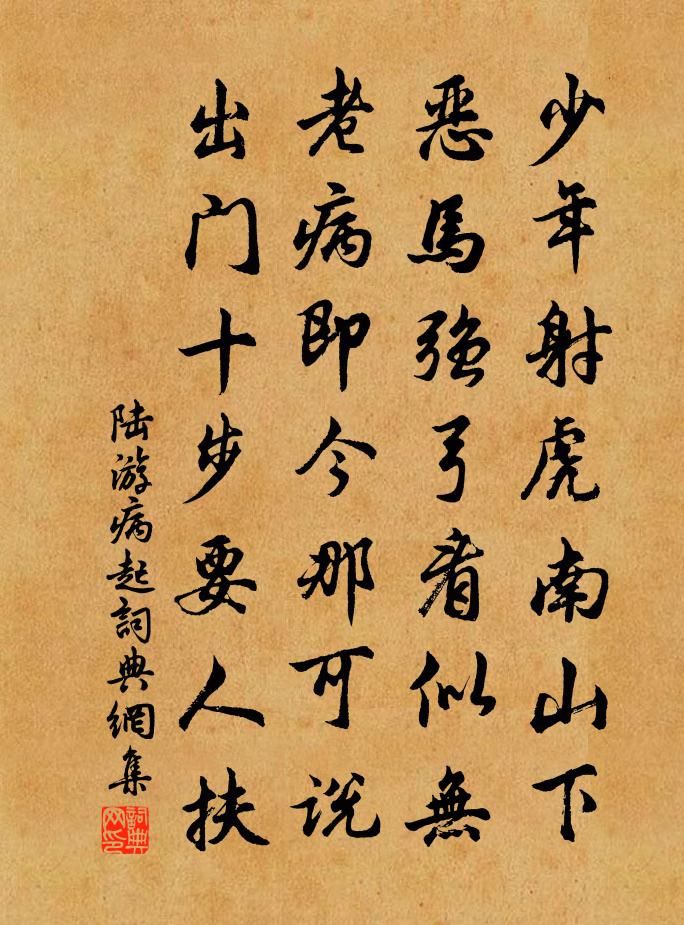 少年射虎南山下
惡馬強弓看似無
老病即今那可说
出门十步要人扶
陆游病起詞典網集
詞典网印